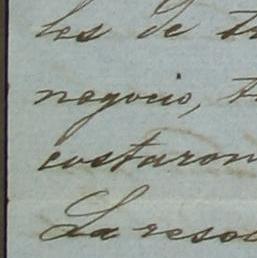 les de t
negocio, t
costaron
La resol